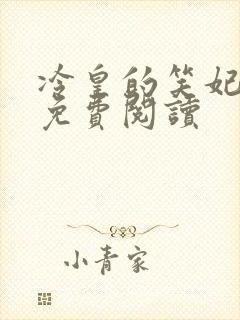 冷皇的笑妃
免費閱讀
小青家